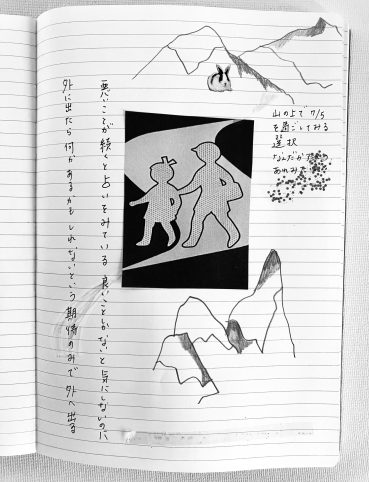 山の上で 7/5
を過ごしてみる
選択
なんだか
悪いことが続くと占いをみている 良いことしかないと気にしないのに
外に出たら何かあるかもしれないという期待のみで外へ出る